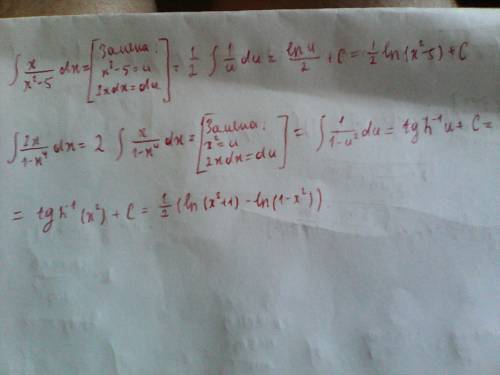 ∫ x/(x²-5) dx = [Замена: x²-5=u 2xdx=du] = 1/2 ∫ 1/u du = ln u/2 + C = 1/2 ln(x²-5) + C
∫ 2x/(1-x⁴) dx = 2 ∫ x/(1-x⁴) dx = [Замена: x²=u 2xdx=du] = ∫ 1/(1-u²) du = tgh⁻¹ u + C =
= tgh⁻¹(x²) + C = 1/2 (ln(x²+1) - ln(1-x²))